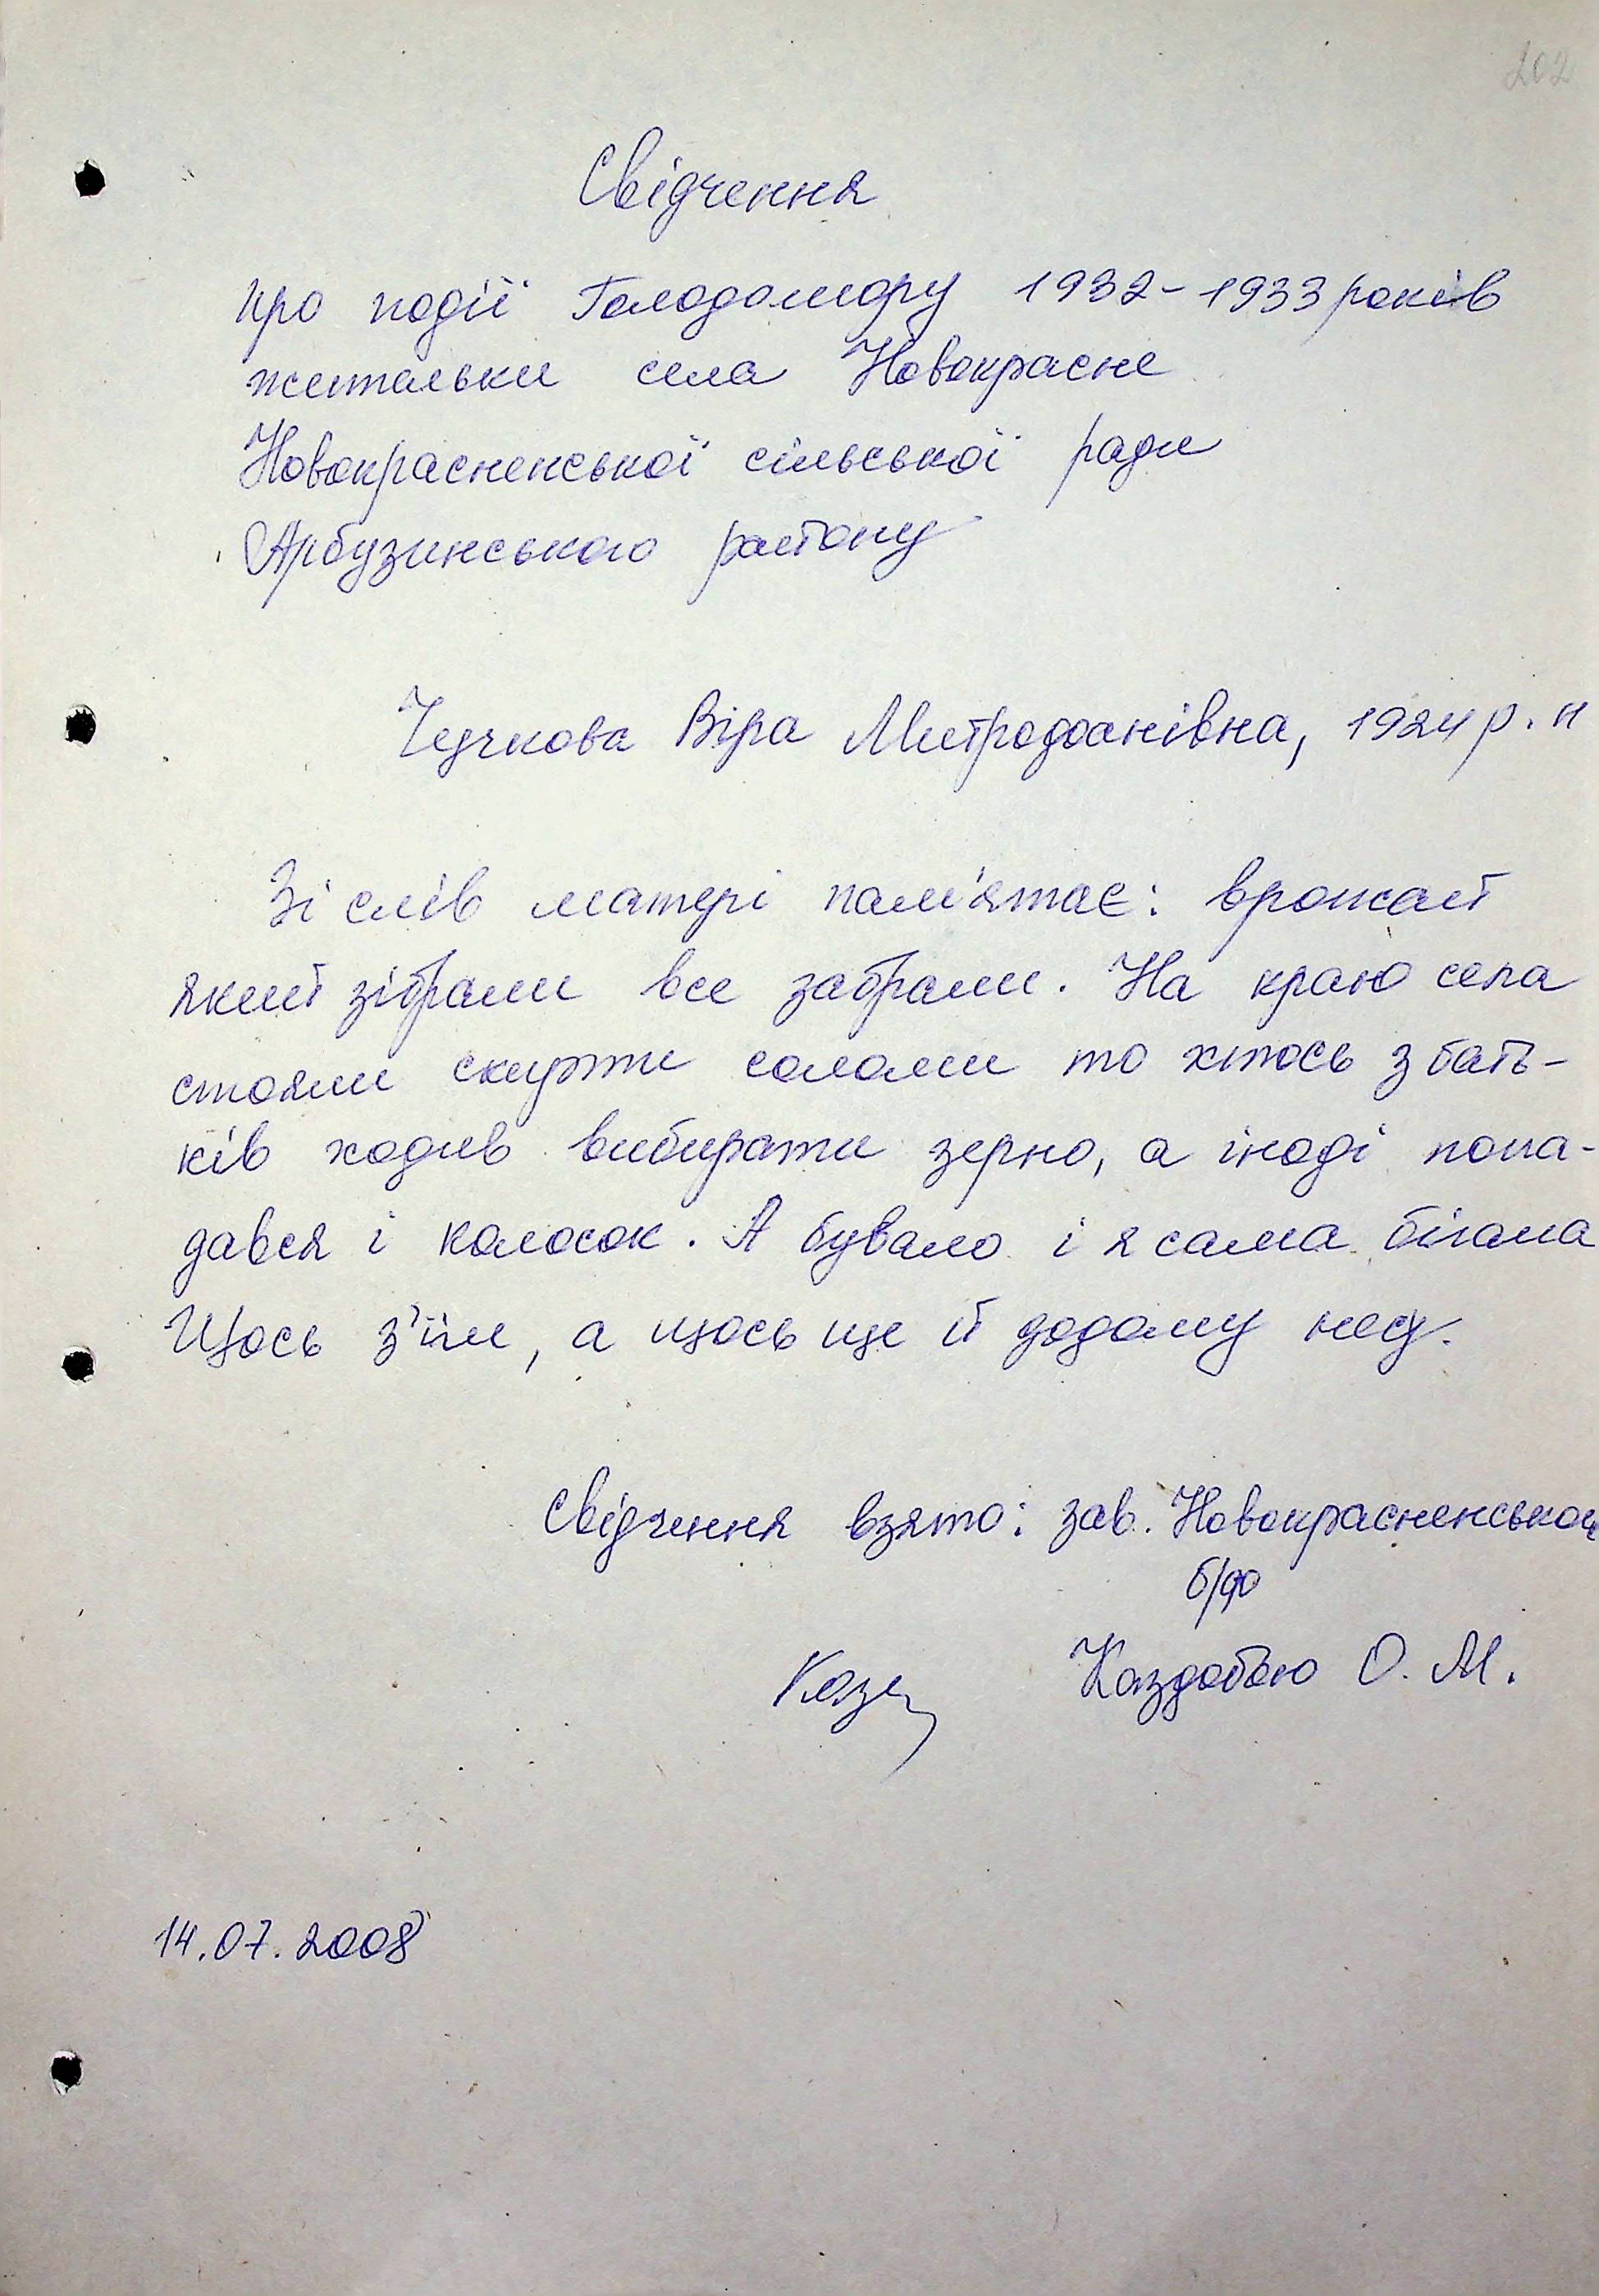 202
Свідчення
про події Голодомору 1932-1933 років
жительки села Новокрасне
Новокрасненської сільської ради
Арбузинського району
Чучкова Віра Митрофанівна, 1924 р. н
Зі слів матері пам'ятає: врожай
який зібрали все забрали. На краю села
стояли скирти соломи то хтось з бать-
ків ходив вибирати зерно, а іноді попа-
дався і колосок. А бувало і я сама бігала
Щось з'їм, а щось ще й додому несу.
Свідчення взято: зав. Новокрасненською
б/ф
Каздобою О. М.
14.07.2008